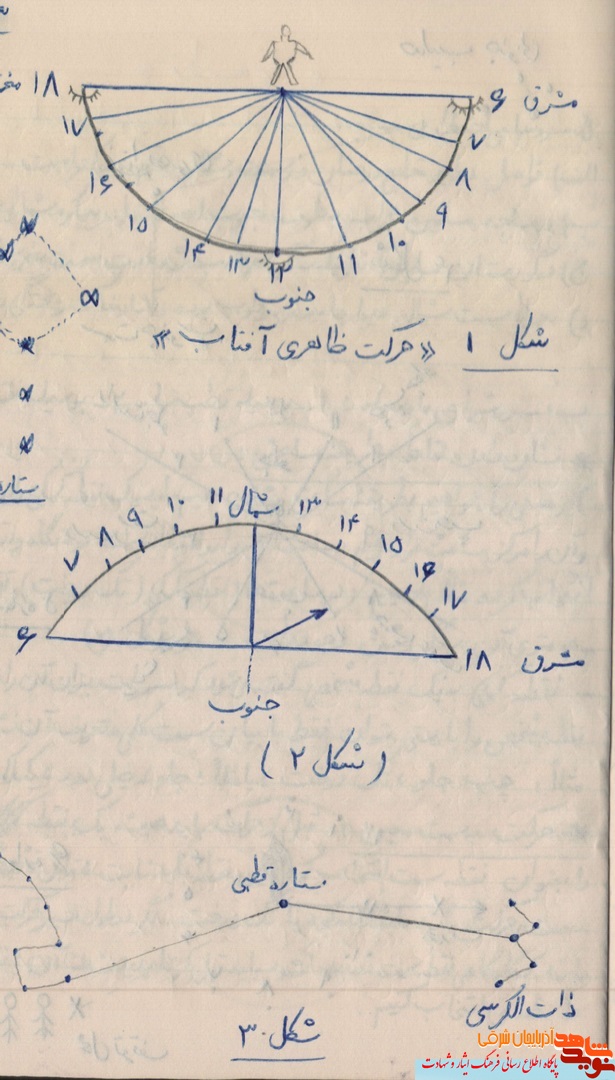 ۱۸
۶ مشرق
۱۷
۷
۱۶
۸
۱۵
۹
۱۴
۱۰
۱۳
۱۲
۱۱
جنوب
شکل ۱ «حرکت ظاهری آفتاب»
۶
۷
۸
۹
۱۰
۱۱
شمال
۱۳
۱۴
۱۵
۱۶
۱۷
۱۸ مشرق
جنوب
(شکل ۲)
ستاره قطبی
ذات الکرسی
شکل ۳۰
نوید شاهد
آذربایجان شرقی
پایگاه اطلاع رسانی فرهنگ ایثار و شهادت